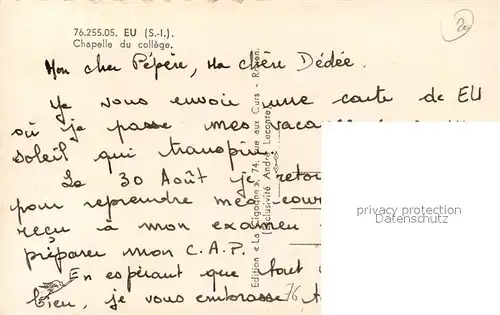 76.255.05. EU (S.-I.).
Chapelle du collège.
Mon cher Pépère, Ma chère Dédée.
Je vous envoie une carte de EU
où je passe mes
soleil qui transpire
Le 30 Août je
pour reprendre mes
reçu à mon examen
préparer mon C.A.P.
En espérant que tout
bien, je vous embrasse
Edition « La Cigogne », 74, rue aux Ours - Rouen.
(Exclusivité André Leconte)
76
privacy protection
Datenschutz